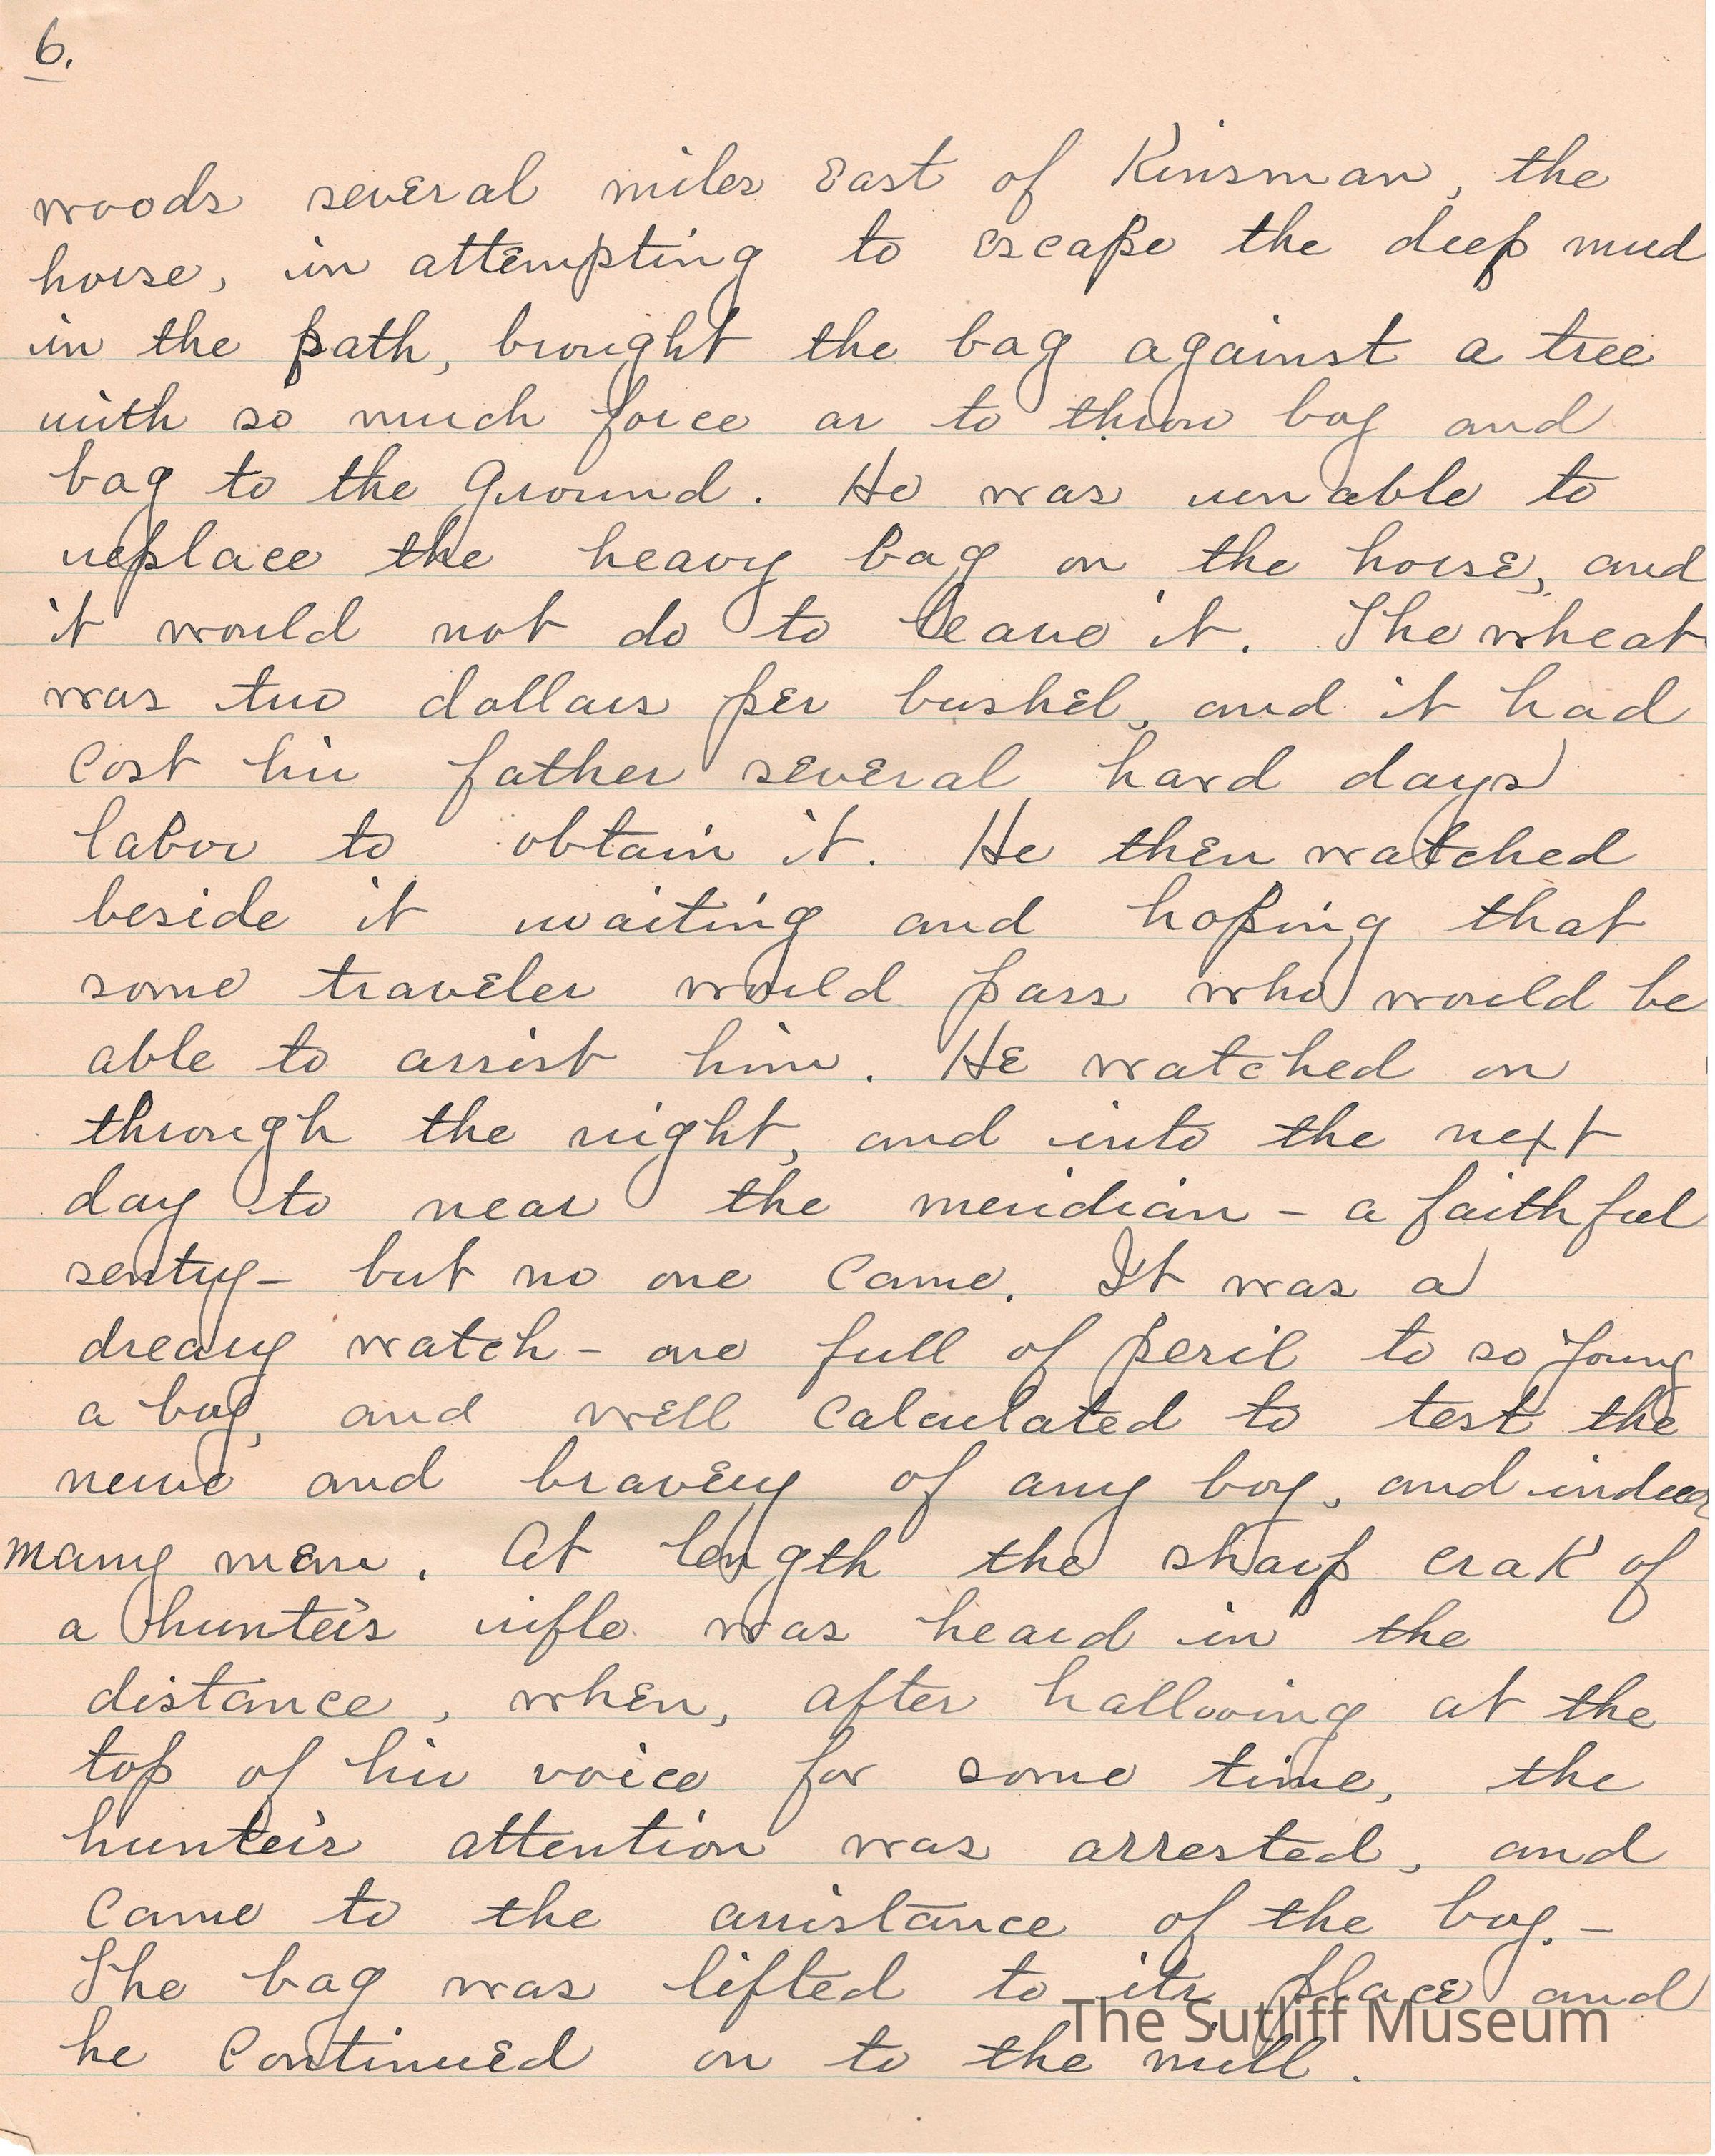 6.
woods several miles East of Kinsman, the
horse, in attempting to escape the deep mud
in the path, brought the bag against a tree
with so much force as to throw boy and
bag to the Ground. He was unable to
replace the heavy bag on the horse, and
it would not do to leave it. The wheat
was two dollars per bushel, and it had
Cost his father several hard days
labor to obtain it. He then watched
beside it waiting and hoping that
some traveler would pass who would be
able to assist him. He watched on
through the night, and into the next
day to near the meridian - a faithful
sentry - but no one Came. It was a
dreary watch - one full of peril to so young
a boy, and well Calculated to test the
nerve and bravery of any boy, and indeed
many men. At length the sharp crak of
a hunter's rifle was heard in the
distance, when, after hallooing at the
top of his voice for some time, the
hunter's attention was arrested, and
Came to the assistance of the boy. -
The bag was lifted to its place and
The Sutliff Museum
he Continued on to the mill.